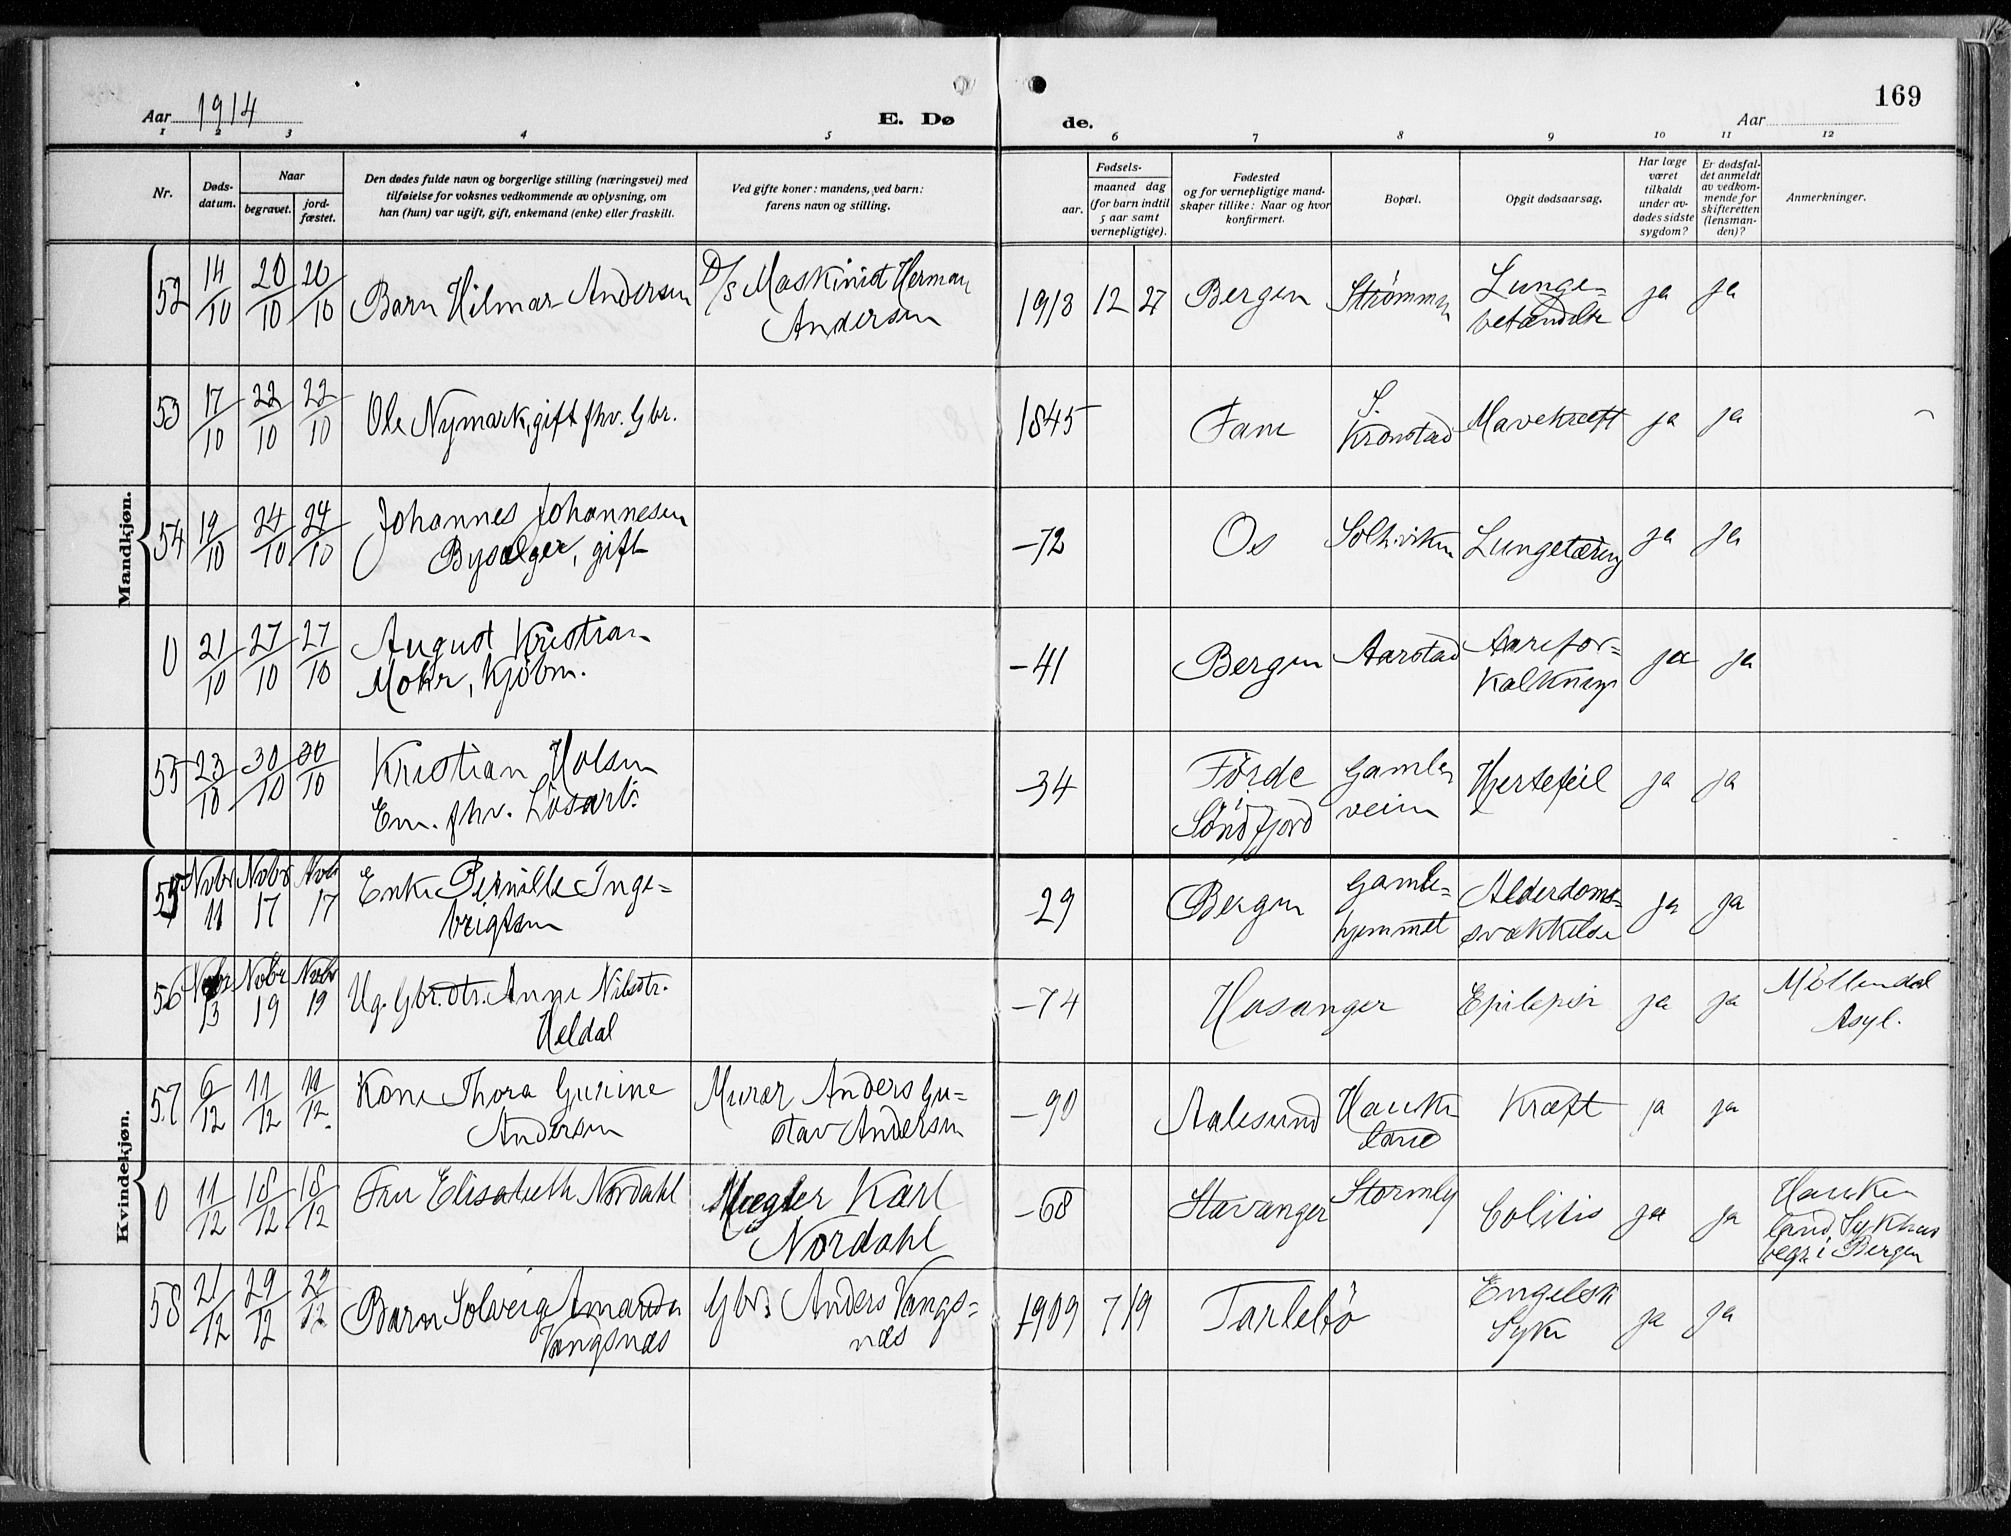 169
Aar 1914
E. Dø de.
Aar
1 2 3 4 5 6 7 8 9 10 11 12
Nr.
Døds-
datum.
Naar
begravet.
jord-
fæstet.
Den dødes fulde navn og borgerlige stilling (næringsvei) med
tilføielse for voksnes vedkommende av oplysning, om
han (hun) var ugift, gift, enkemand (enke) eller fraskilt.
Ved gifte koner: mandens, ved barn:
farens navn og stilling.
Fødsels-
aar.
maaned dag
(for barn indtil
5 aar samt
vernepligtige).
Fødested
og for vernepligtige mand-
skaper tillike: Naar og hvor
konfirmert.
Bopæl.
Opgit dødsaarsag.
Har læge
været
tilkaldt
under av-
dødes sidste
sygdom?
Er dødsfal-
det anmeldt
av vedkom-
mende for
skifteretten
(lensman-
den)?
Anmerkninger.
Mandkjøn.
52 14/10 20/10 20/10 Barn Hilmar Andersen D/S Maskinist Herman
Andersen
1913 12 27 Bergen Strømmen Lunge-
betændelse ja ja
53 17/10 22/10 22/10 Ole Nymark, gift fhv. Gbr.
1845 Fane S.
Kronstad Mavekræft ja ja
54 19/10 24/10 24/10 Johannes Johannesen
Bysælger, gift
-72 Os Solhviken Lungetæring ja ja
0 21/10 27/10 27/10 August Kristian
Mohr, Kjøbm.
-41 Bergen Aarstad Aarefor-
kalkning ja ja
55 23/10 30/10 30/10 Kristian Holsen
Em. fhv. Løsarb:
-34 Førde
Søndfjord Gamle
veien Hjertefeil ja ja
Kvindekjøn.
55 Novbr 11 Novbr 17 Novbr 17 Enke Pernille Inge-
brigtsen
-29 Bergen Gamle-
hjemmet Alderdoms-
svækkelse ja ja
56 Novbr 13 Novbr 19 Novbr 19 Ug. Gbr. dtr. Anne Nilsdtr.
Heldal
-74 Hosanger Epilepsi ja ja Møllendal
Asyl.
57 6/12 11/12 11/12. Kone Thora Gurine
Andersen Murer Anders Gu-
stav Andersen
-90 Aalesund Hauke
land Kræft ja ja
0 11/12 18/12 18/12 Fru Elisabeth Nordahl Mægler Karl
Nordahl
-68 Stavanger Stormly Colitis ja ja Hauke
land, Sykhus
begr. i Bergen
58 21/12 29/12 29/12 Barn Solveig Amanda
Vangsnæs Gbr. Anders Vangs-
næs
1909 7 19 Tarlebø Engelsk
Syke ja ja